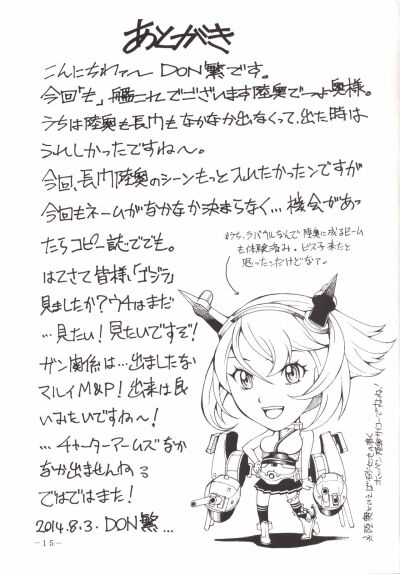 あとがき
こんにちわァ〜 DON繁です。
今回「も」艦これでございます陸奥でーっよ奥様。
うちは陸奥も長門もなかなか出なくって、出た時は
うれしかったですね〜。
今回、長門陸奥のシーンもっと入れたかったンですが
今回もネームがなかなか決まらなく…機会があっ
たらコピー誌ででも。
はてさて皆様「ゴジラ」
見ましたか?ウチはまだ
…見たい!見たいですぞ!
ガン関係は…出ましたな
マルイM&P!出来は良
いみたいですね〜!
…チャーターアームズなか
なか出ませんねぇ
ではではまた!
2014.8.3. DON繁...
うち、ラバウルなんで陸奥に成るビーム
も体験済み。ビス子来たと
思ったンだけどなァ。
-15-